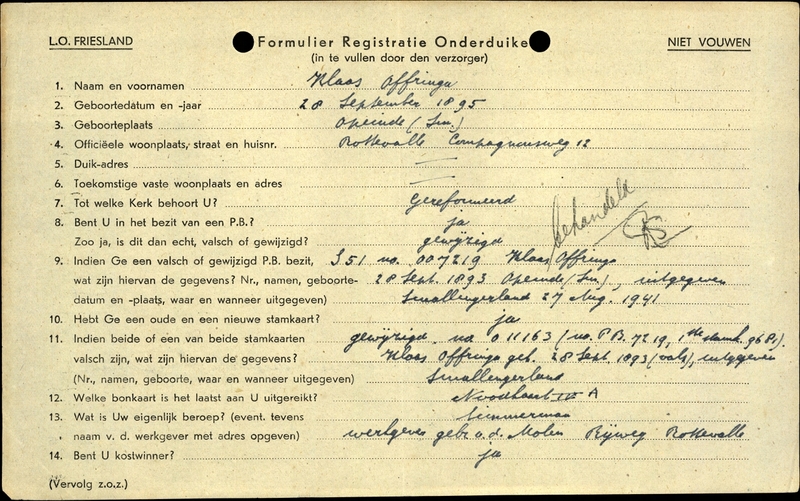 L.O. FRIESLAND
Formulier Registratie Onderduike
NIET VOUWEN
(in te vullen door den verzorger)
1. Naam en voornamen Klaas Offringa
2. Geboortedatum en -jaar 28 September 1895
3. Geboorteplaats Opeinde (Sm.)
4. Officiëele woonplaats, straat en huisnr. Rottevalle Compagnonsweg 12
5. Duik-adres —
6. Toekomstige vaste woonplaats en adres —
7. Tot welke Kerk behoort U? Gereformeerd
8. Bent U in het bezit van een P.B.? ja
Zoo ja, is dit dan echt, valsch of gewijzigd? gewijzigd
behandeld
9. Indien Ge een valsch of gewijzigd P.B. bezit, S51 no. 007219 Klaas Offringa
wat zijn hiervan de gegevens? Nr., namen, geboorte- 28 Sept. 1893 Opeinde (Sm), uitgegeven
datum en -plaats, waar en wanneer uitgegeven) Smallingerland 27 Aug. 1941
10. Hebt Ge een oude en een nieuwe stamkaart? ja
11. Indien beide of een van beide stamkaarten gewijzigd no 011163 (no. P.B. 7219, 1ste stamk. 9681)
valsch zijn, wat zijn hiervan de gegevens? Klaas Offringa geb. 28 Sept. 1893 (vals), uitgegeven
(Nr., namen, geboorte, waar en wanneer uitgegeven) Smallingerland
12. Welke bonkaart is het laatst aan U uitgereikt? Noodkaart A
13. Wat is Uw eigenlijk beroep? (event. tevens timmerman
naam v. d. werkgever met adres opgeven) werkgever gebr. v.d. Molen Rijweg Rottevalle
14. Bent U kostwinner? ja
(Vervolg z.o.z.)